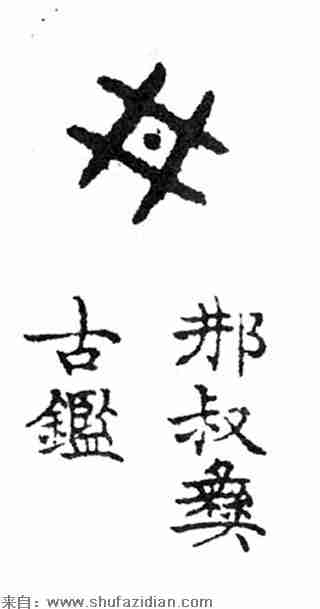 丼
邢叔彝
古鑑
来自：www.shufazidian.com